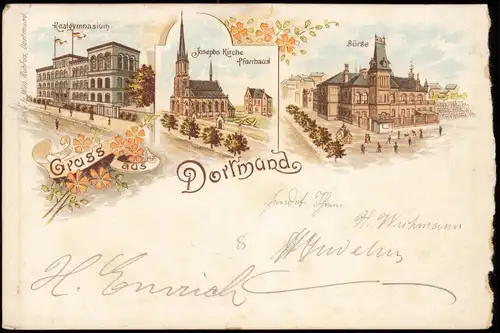 Realgymnasium
Josephs Kirche
Pfarrhaus
Börse
Gruss
aus
Dortmund
sendet Ihnen
H. Wichmann
&
H. Emrich